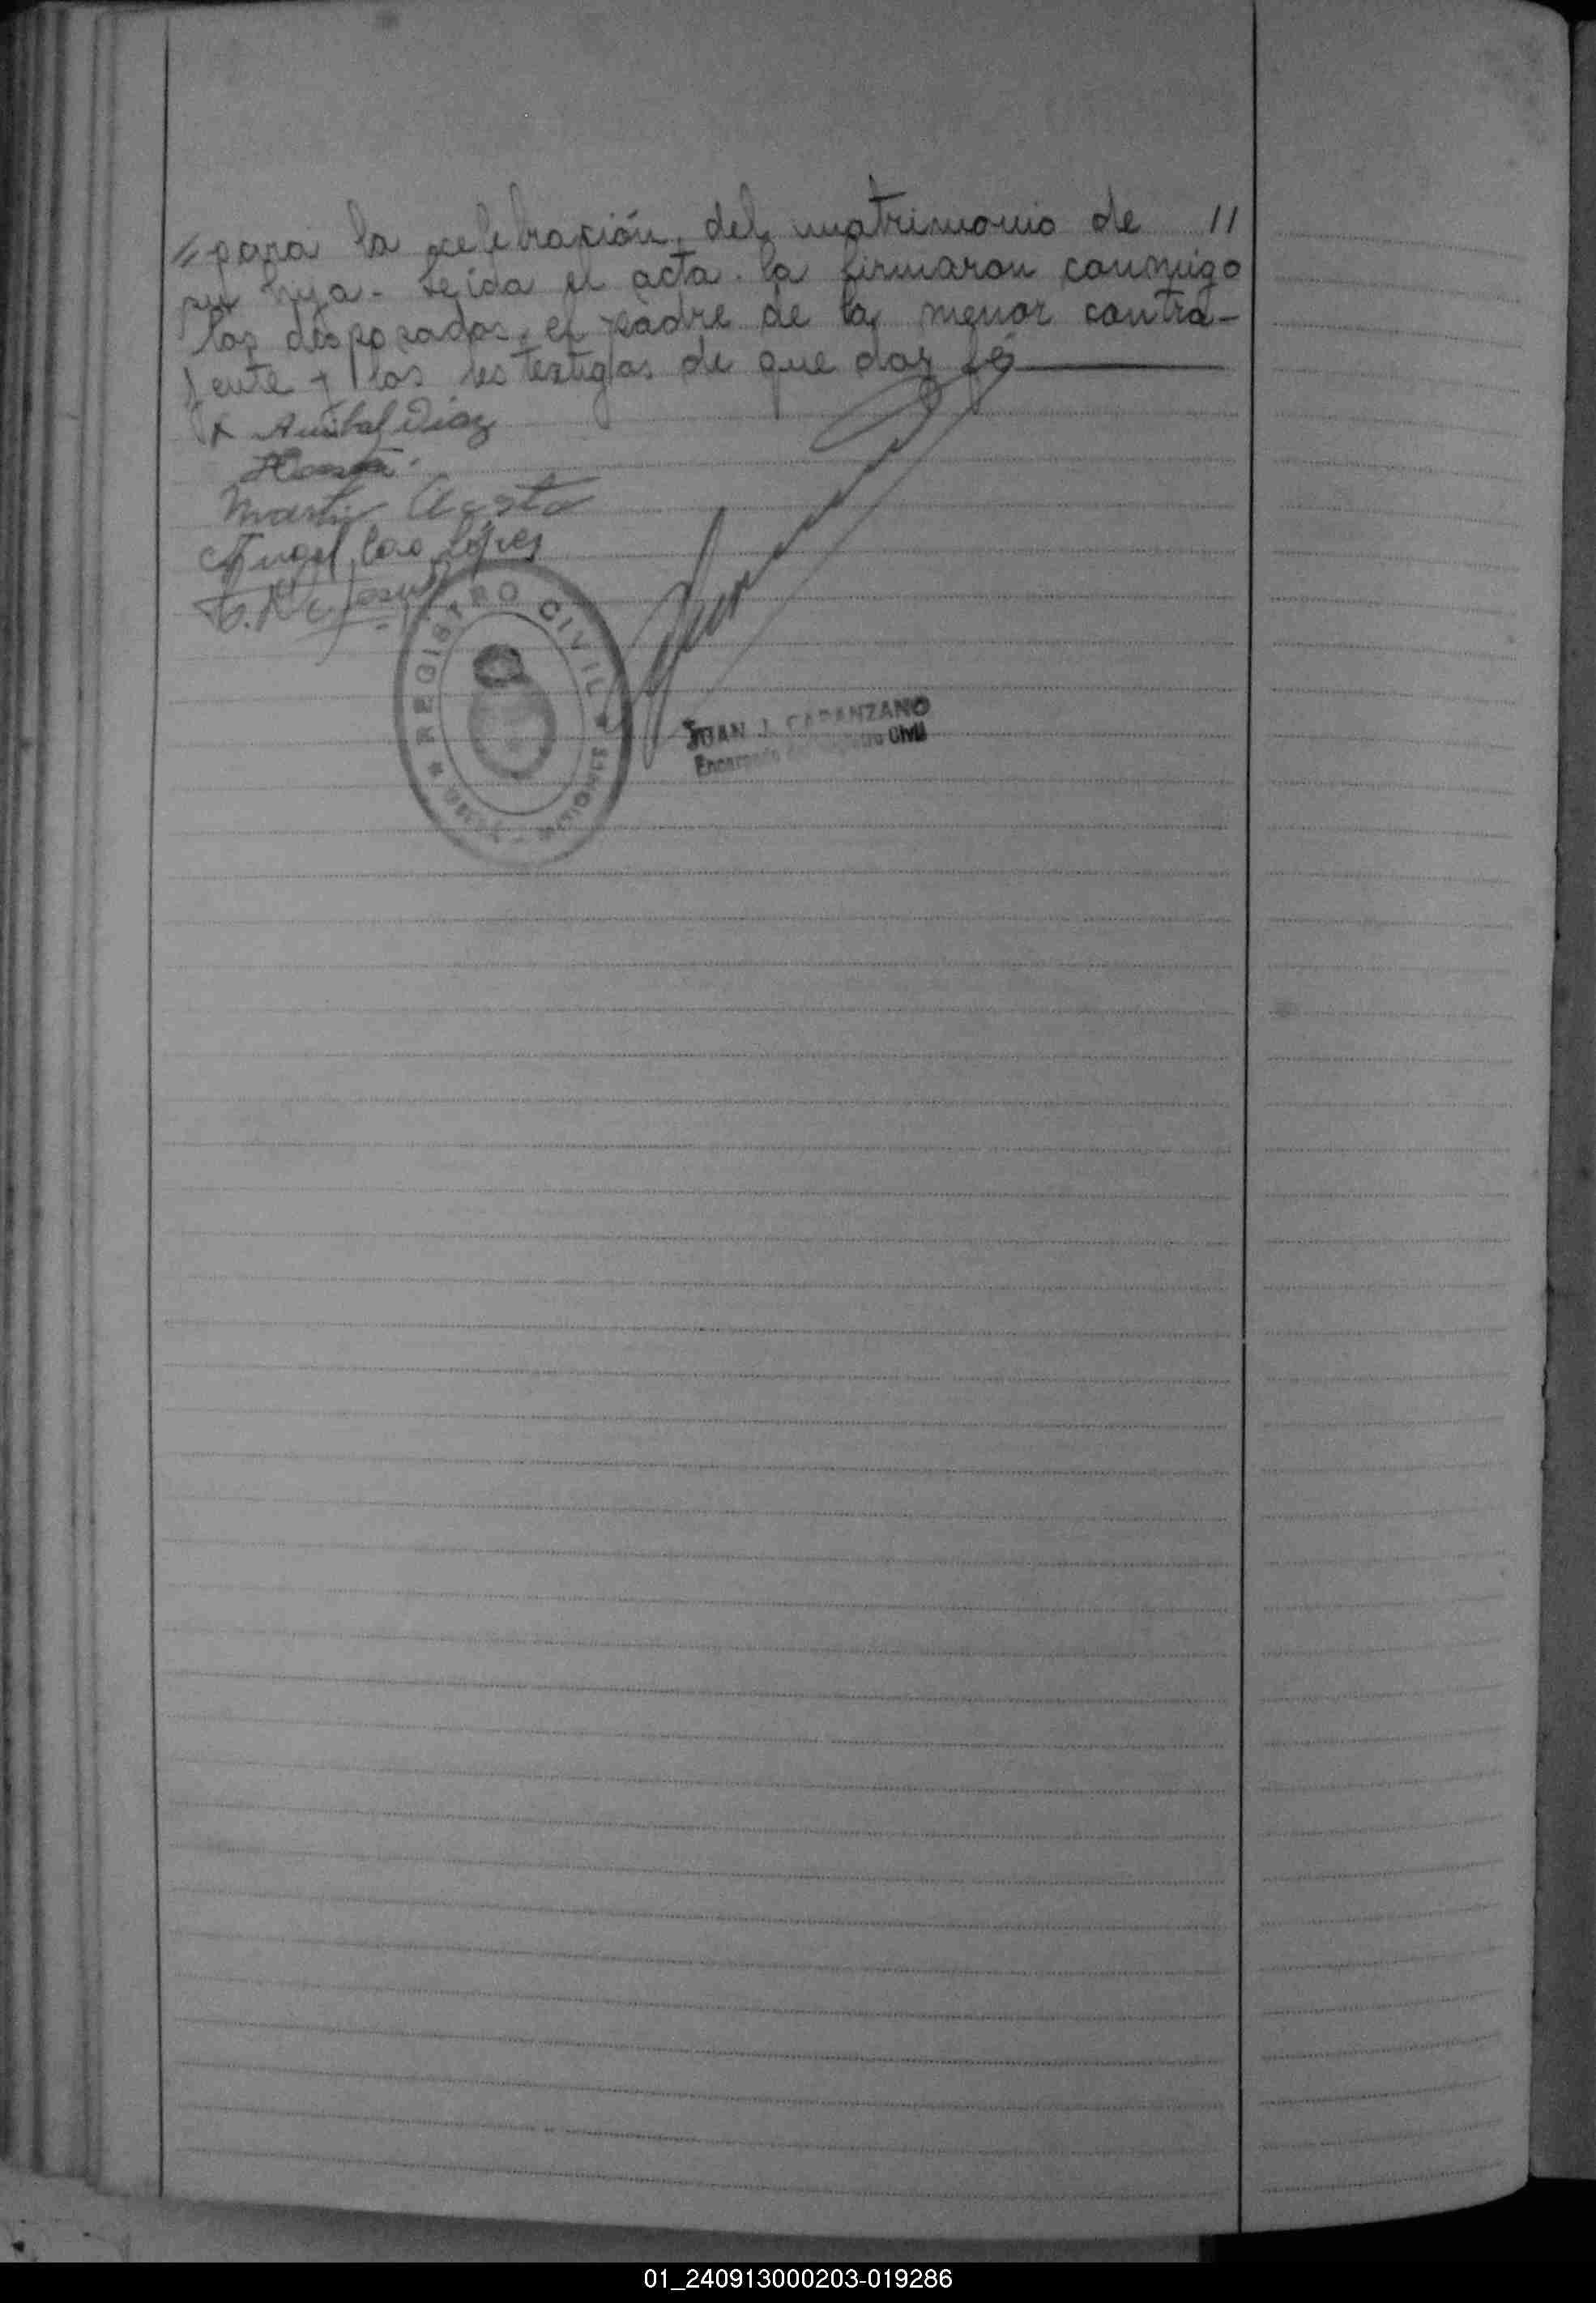 // para la celebración del matrimonio de //
su hija - Leida el acta la firmaron conmigo
los desposados, el padre de la menor contra-
yente y los testigos de que doy fé
Anibal Diaz
Martin Acosta
Angel López
REGISTRO CIVIL
MISIONES
JUAN J. CAPANZANO
Encargado del Registro Civil
01_240913000203-019286